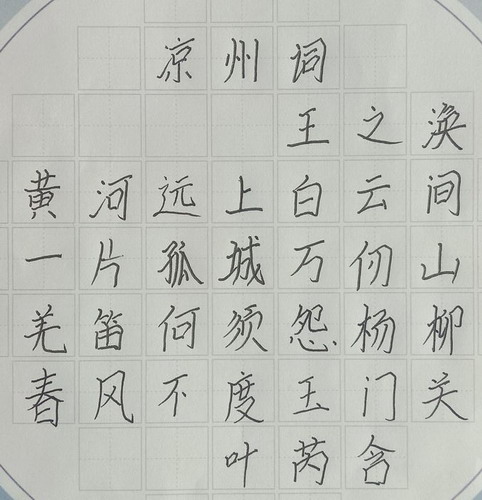 凉州词
王之涣
黄河远上白云间
一片孤城万仞山
羌笛何须怨杨柳
春风不度玉门关
叶芮含